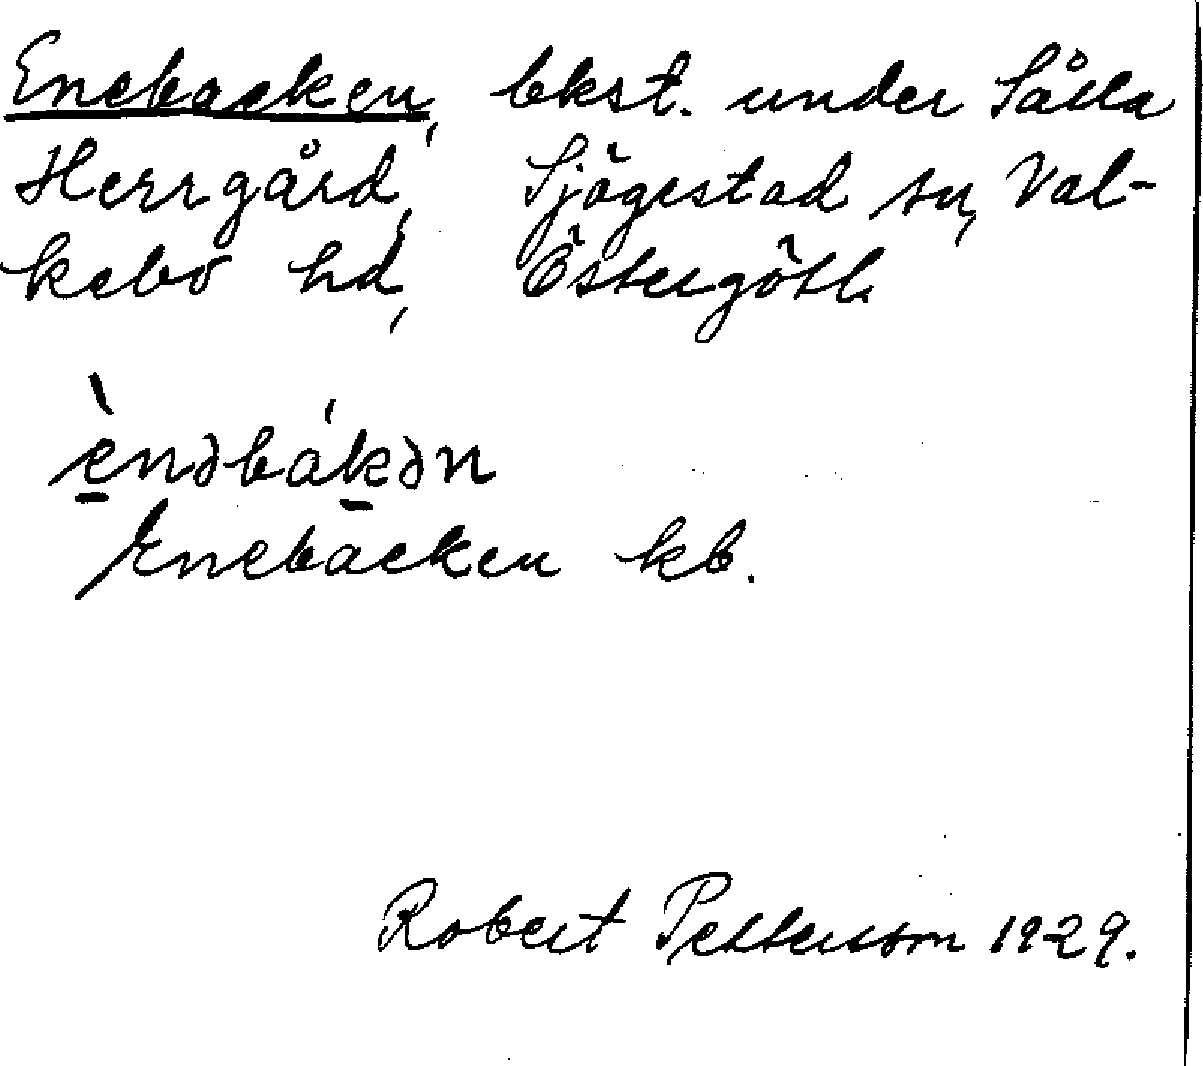 Enebacken, bkst. under Sålla
Herrgård, Sjögestad sn, Val-
kebo hd, Östergötl.
ènəbákən
Enebacken kb.
Robert Petterson 1929.